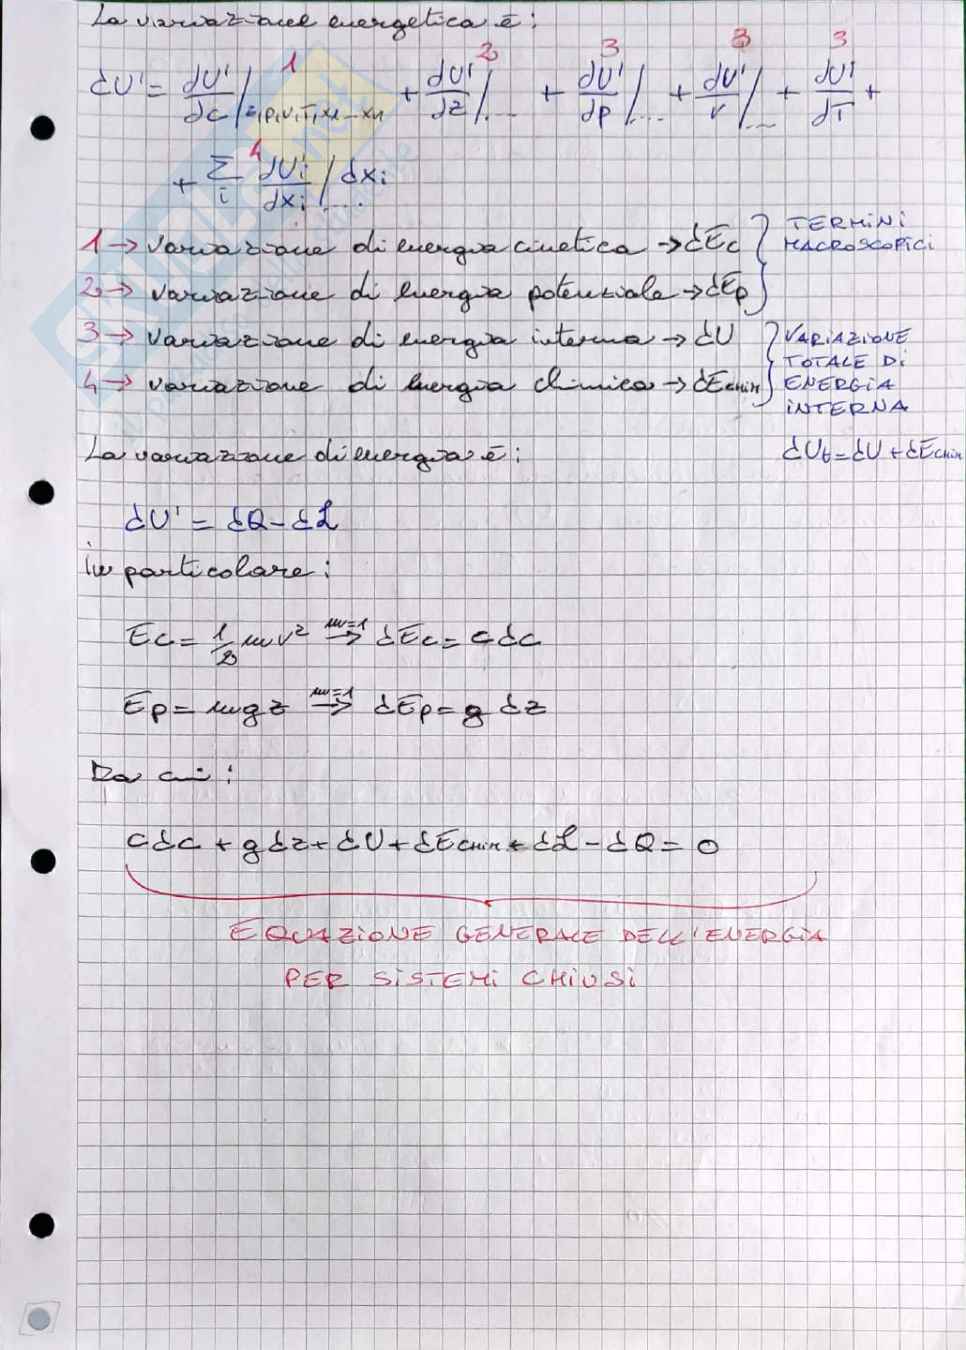 La variazione energetica è:
1 2 3 3 3
dU' = dU'/dc |z,p,v,T,x1...xn + dU'/dz |.... + dU'/dp |.... + dU'/v |.... + dU'/dT +
4
+ Σi dUi/dxi |.... dxi
1 → variazione di energia cinetica → dEc
TERMINI MACROSCOPICI
2 → variazione di energia potenziale → dEp
3 → variazione di energia interna → dU
4 → variazione di energia chimica → dEchim
VARIAZIONE
TOTALE DI
ENERGIA
INTERNA
La variazione di energia è:
dUt = dU + dEchim
dU' = dQ - dL
in particolare:
Ec = 1/2 mv² m=1→ dEc = c dc
Ep = mgz m=1→ dEp = g dz
Da cui:
cdc + gdz + dU + dEchim + dL - dQ = 0
EQUAZIONE GENERALE DELL'ENERGIA
PER SISTEMI CHIUSI